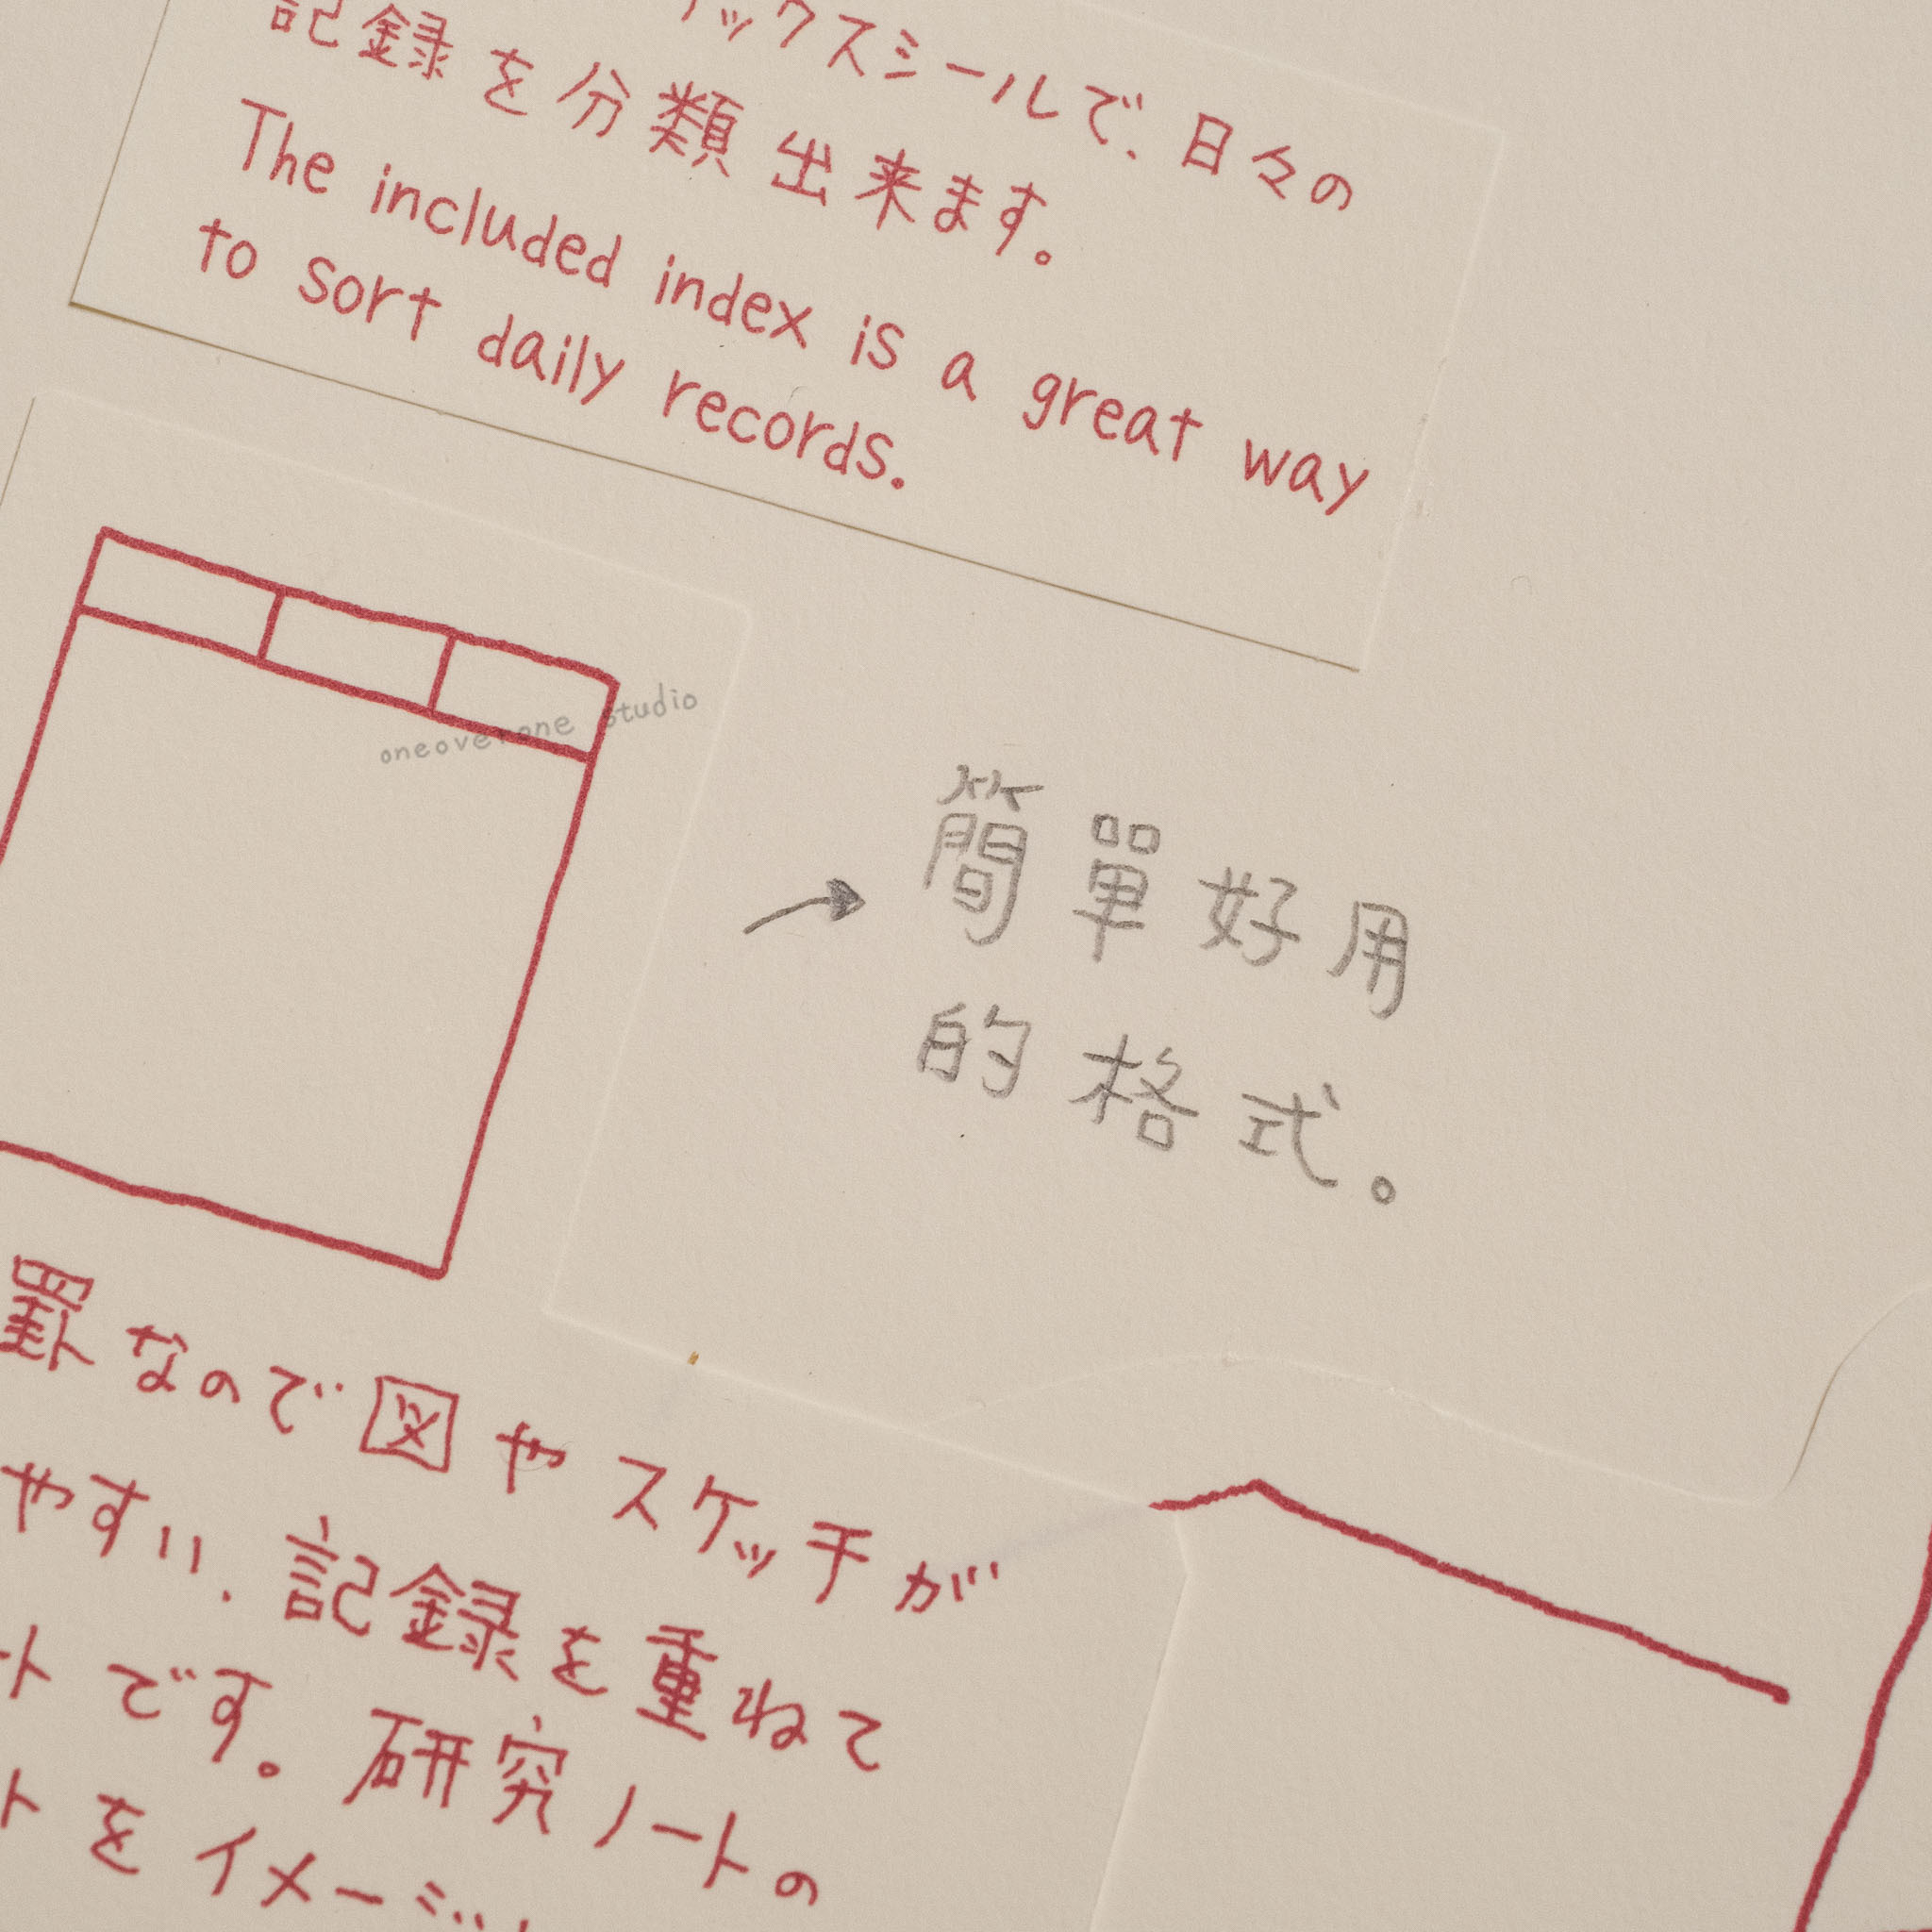 ックスシールで、日々の
記録を分類出来ます。
The included index is a great way
to sort daily records.
oneoverone studio
簡單好用
的格式。
罫なので図やスケッチが
やすい、記録を重ねて
トです。研究ノートの
トをイメージ